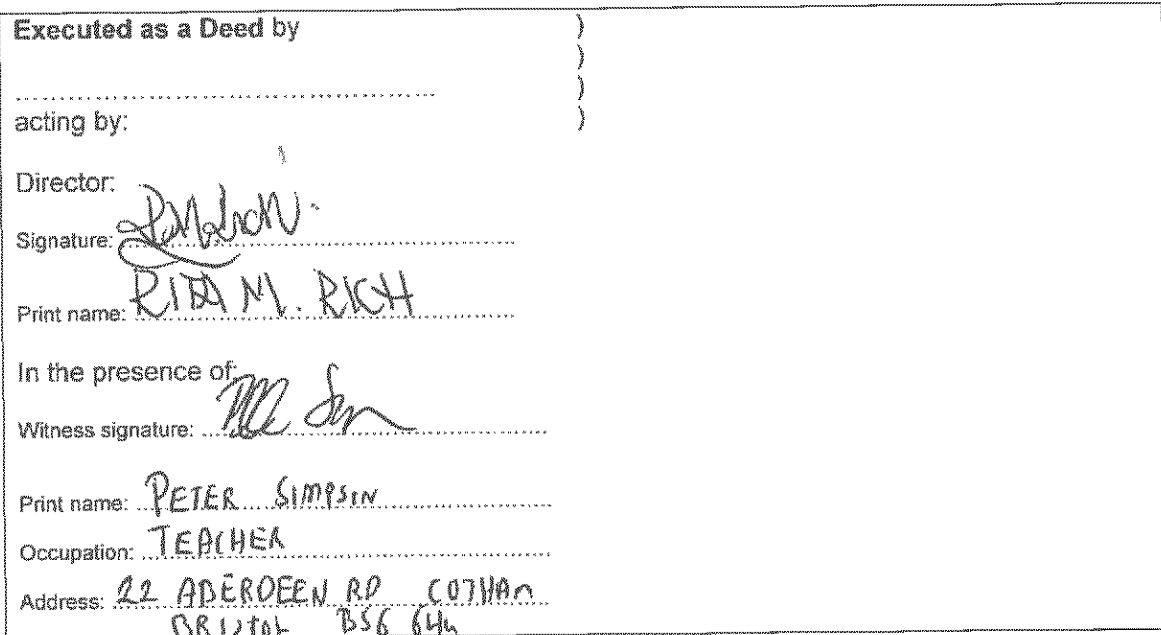 Executed as a Deed by )
)
.......................................................... )
acting by: )
Director:
Signature:
Print name: RITA M. RICH
In the presence of:
Witness signature:
Print name: PETER SIMPSON
Occupation: TEACHER
Address: 22 ABERDEEN RD COTHAM
BRISTOL BS6